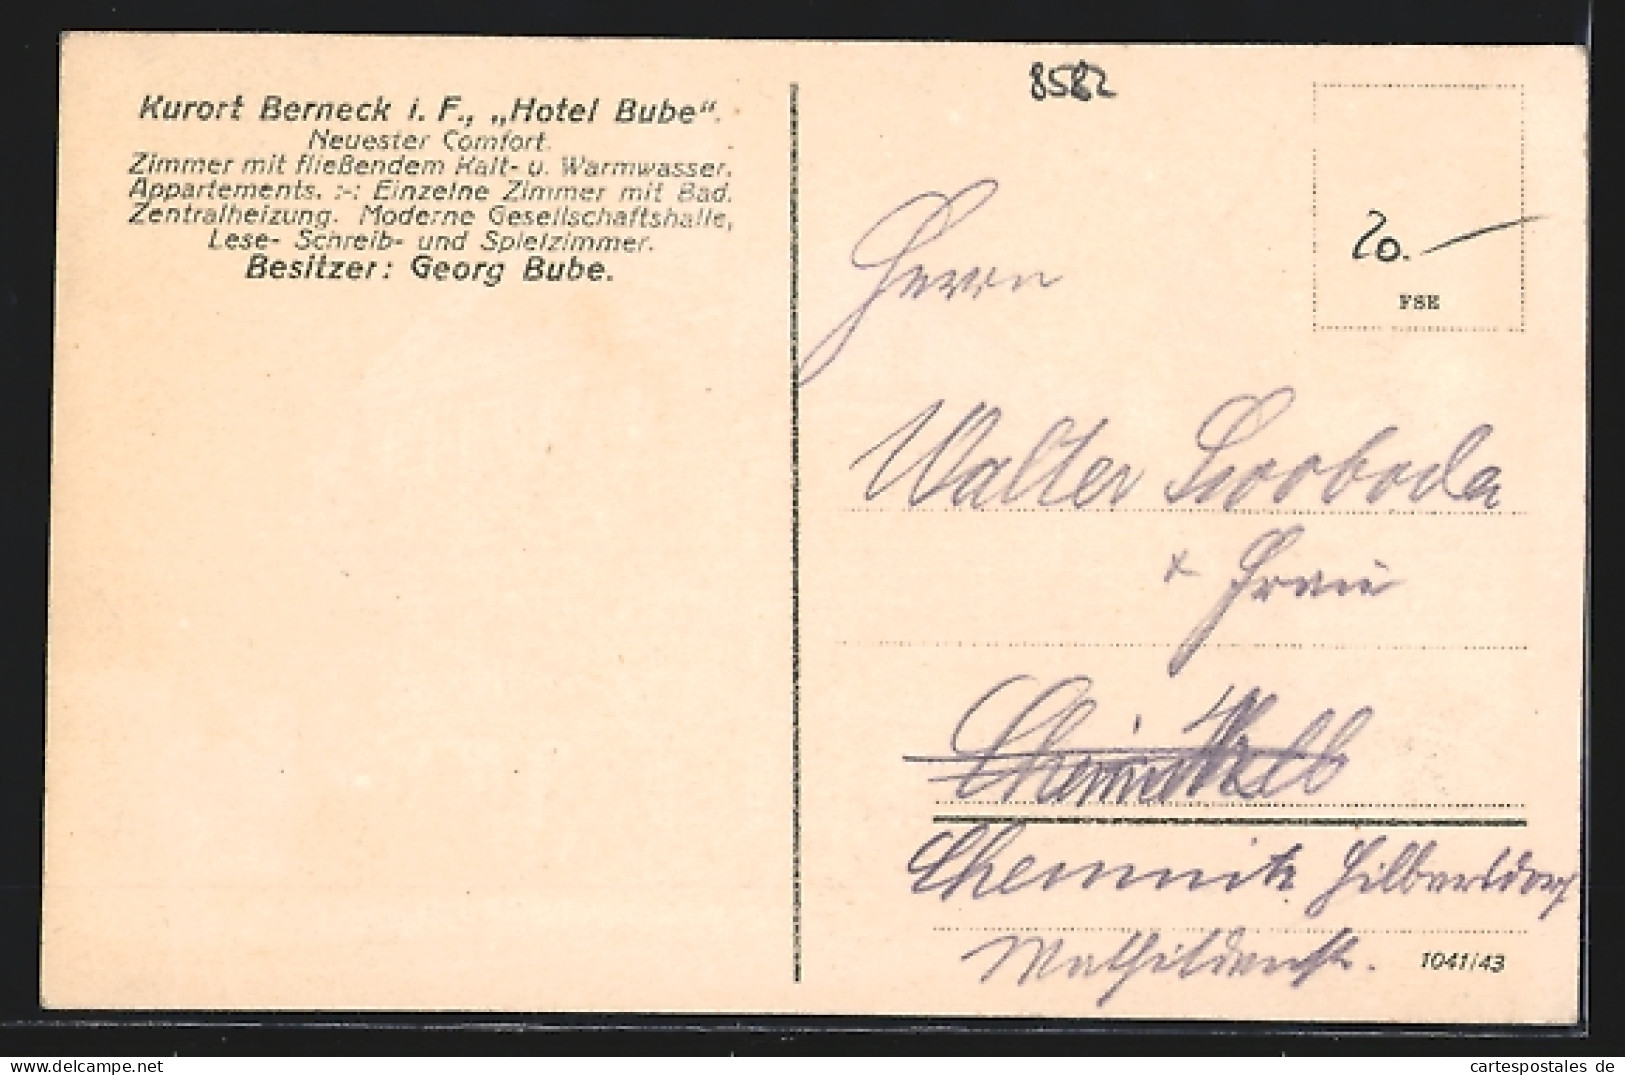 Kurort Berneck i. F., „Hotel Bube“.
Neuester Comfort.
Zimmer mit fließendem Kalt- u. Warmwasser.
Appartements. :-: Einzelne Zimmer mit Bad.
Zentralheizung. Moderne Gesellschaftshalle,
Lese- Schreib- und Spielzimmer.
Besitzer: Georg Bube.
8582
20.-
FSE
Herrn
Walter Swoboda
+ Frau
Chemnitz Hilbersdorf
Mathildenstr.
1041/43
cartespostales de
delcampe.net